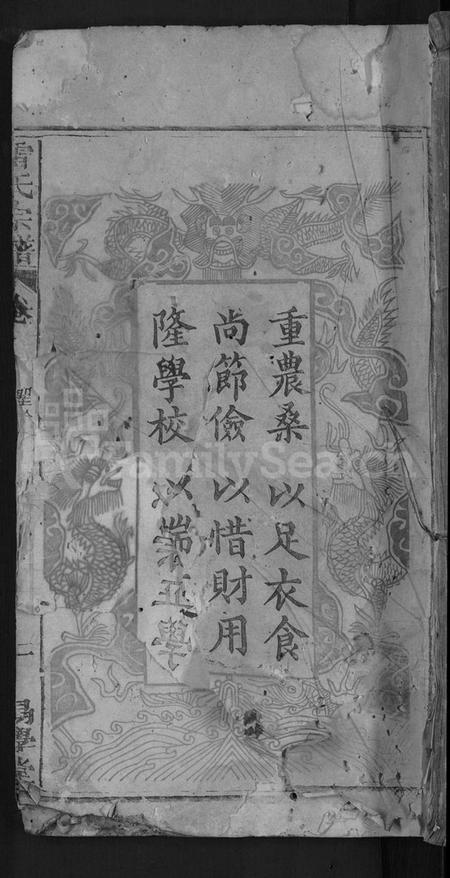 重農桑以足衣食
尚節儉以惜財用
隆學校以端士學
氏宗譜
卷
聖
一
學堂
FamilySearch